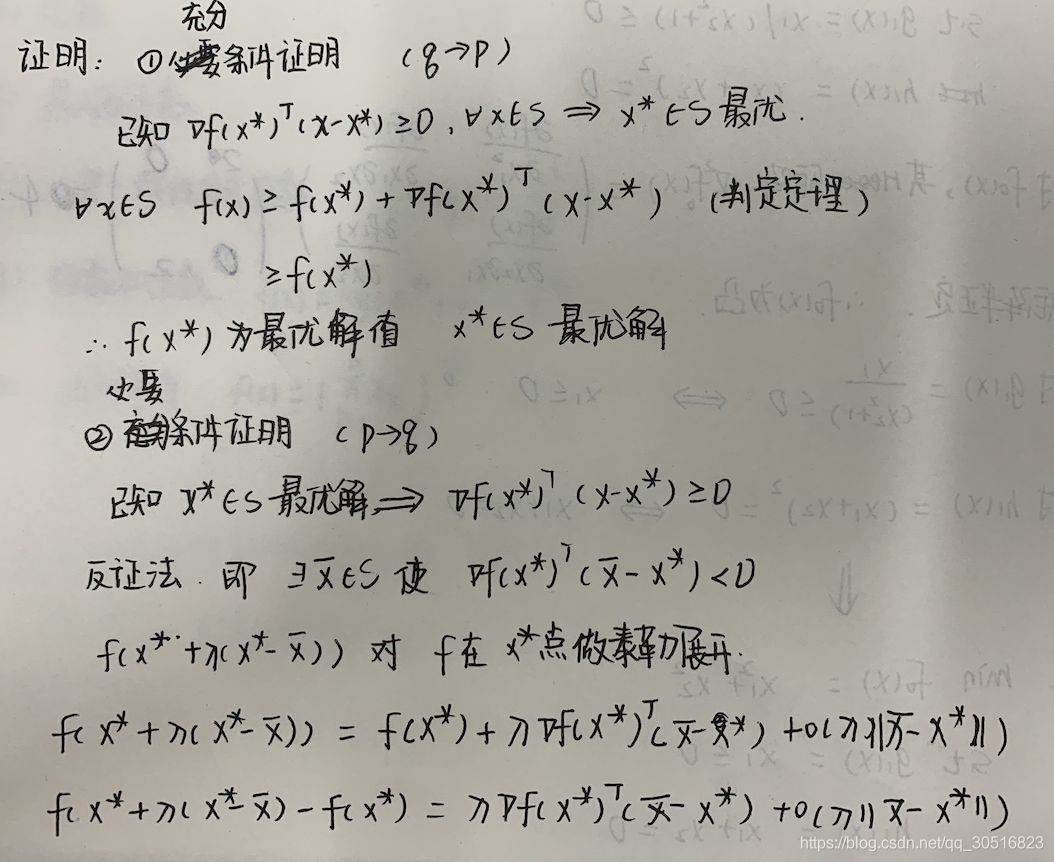 充分
证明: ①必要条件证明 (q→p)
已知 ∇f(x*)ᵀ(x-x*)≥0, ∀x∈S ⟹ x*∈S 最优.
∀x∈S f(x) ≥ f(x*) + ∇f(x*)ᵀ (x-x*) (判定定理)
≥ f(x*)
∴ f(x*) 为最优解值 x*∈S 最优解
必要
② 条件证明 (p→q)
已知 x*∈S 最优解 ⟹ ∇f(x*)ᵀ (x-x*) ≥0
反证法. 即 ∃x̄∈S 使 ∇f(x*)ᵀ(x̄-x*)<0
f(x*+λ(x*-x̄)) 对 f在 x*点做泰勒展开.
f(x*+λ(x*-x̄)) = f(x*)+λ∇f(x*)ᵀ(x̄-x*) +o(λ||x̄-x*||)
f(x*+λ(x*-x̄)-f(x*) = λ∇f(x*)ᵀ(x̄-x*) +o(λ||x̄-x*||)
https://blog.csdn.net/qq_30516823